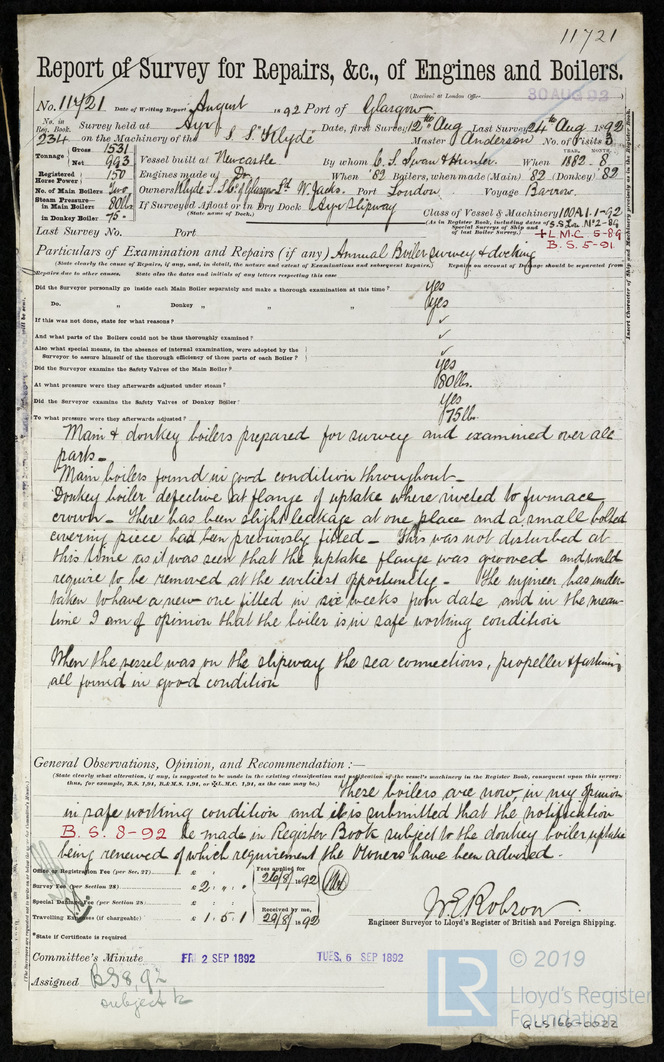 11721
Report of Survey for Repairs, &c., of Engines and Boilers.
(Received at London Office
30 AUG 92
No. 11721 Date of Writing Report August 1892 Port of Glasgow
No. in Reg. Book. Survey held at Ayr Date, first Survey 12th Aug Last Survey 24th Aug 1892
234 on the Machinery of the S.S. "Klyde" Master Anderson No. of Visits 3
Tonnage Gross 1531 Net 993 Vessel built at Newcastle By whom C. S. Swan & Hunter. When YEAR. 1882. MONTH. 8
Registered Horse Power 150 Engines made at Do. When '82 Boilers, when made (Main) '82 (Donkey) '82
No. of Main Boilers Two Owners Klyde S.S. Co. of Glasgow Ld W. Jacks. Port London Voyage Barrow.
Steam Pressure in Main Boilers 80 lbs. If Surveyed Afloat or in Dry Dock Ayr Slipway
(State name of Dock.)
in Donkey Boiler 75 Class of Vessel & Machinery 100A1.1-92
(As in Register Book, including dates of Special Surveys of Ship and of last Boiler Survey.) S.S. No 2-86
+L.M.C. 5-89
B.S. 5-91
Last Survey No. Port
Particulars of Examination and Repairs (if any) Annual Boiler survey & docking
(State clearly the cause of Repairs, if any, and, in detail, the nature and extent of Examinations and subsequent Repairs.) Repairs on account of Damage should be separated from
Repairs due to other causes. State also the dates and initials of any letters respecting this case
Did the Surveyor personally go inside each Main Boiler separately and make a thorough examination at this time? yes
Do. " Donkey " " " yes
If this was not done, state for what reasons? ✓
And what parts of the Boilers could not be thus thoroughly examined? ✓
Also what special means, in the absence of internal examination, were adopted by the
Surveyor to assure himself of the thorough efficiency of those parts of each Boiler? ✓
Did the Surveyor examine the Safety Valves of the Main Boiler? yes
At what pressure were they afterwards adjusted under steam? 80 lbs.
Did the Surveyor examine the Safety Valves of Donkey Boiler? yes
To what pressure were they afterwards adjusted? 75 lb
Main & donkey boilers prepared for survey and examined over all
parts -
Main boilers found in good condition throughout -
Donkey boiler defective at flange of uptake where riveted to furnace
crown - There has been slight leakage at one place and a small bolted
covering piece had been previously fitted - This was not disturbed at
this time as it was seen that the uptake flange was grooved and would
require to be removed at the earliest opportunity - The engineer has under-
taken to have a new one fitted in six weeks from date and in the mean-
time I am of opinion that the boiler is in safe working condition
When the vessel was on the slipway the sea connections, propeller & fastenings
all found in good condition
General Observations, Opinion, and Recommendation :—
(State clearly what alteration, if any, is suggested to be made in the existing classification and notification of the vessel's machinery in the Register Book, consequent upon this survey;
thus, for example, B.S. 1,91, B.&M.S. 1,91, or +L.M.C. 1,91, as the case may be.)
These boilers are now in my opinion
in safe working condition and it is submitted that the notification
B.S. 8-92 be made in Register Book subject to the donkey boiler uptake
being renewed of which requirement the Owners have been advised.
Office or Registration Fee (per Sec. 27) £ : :
Survey Fee (per Section 28) £ 2 : :
Special Damage Fee (per Section 28) £ : :
Travelling Expenses (if chargeable) £ 1 . 5 . 1
Fees applied for 26/8/1892
Received by me, 29/8/1892
*State if Certificate is required
W. E. Robson
Engineer Surveyor to Lloyd's Register of British and Foreign Shipping.
Committee's Minute FRI 2 SEP 1892 TUES. 6 SEP 1892
Assigned BS 8,92
subject &
LR
© 2019
Lloyd's Register
Foundation
GLS166-0022